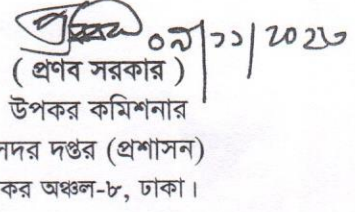 ০৯/১১/২০২৩
( প্রণব সরকার )
উপকর কমিশনার
সদর দপ্তর (প্রশাসন)
কর অঞ্চল-৮, ঢাকা।